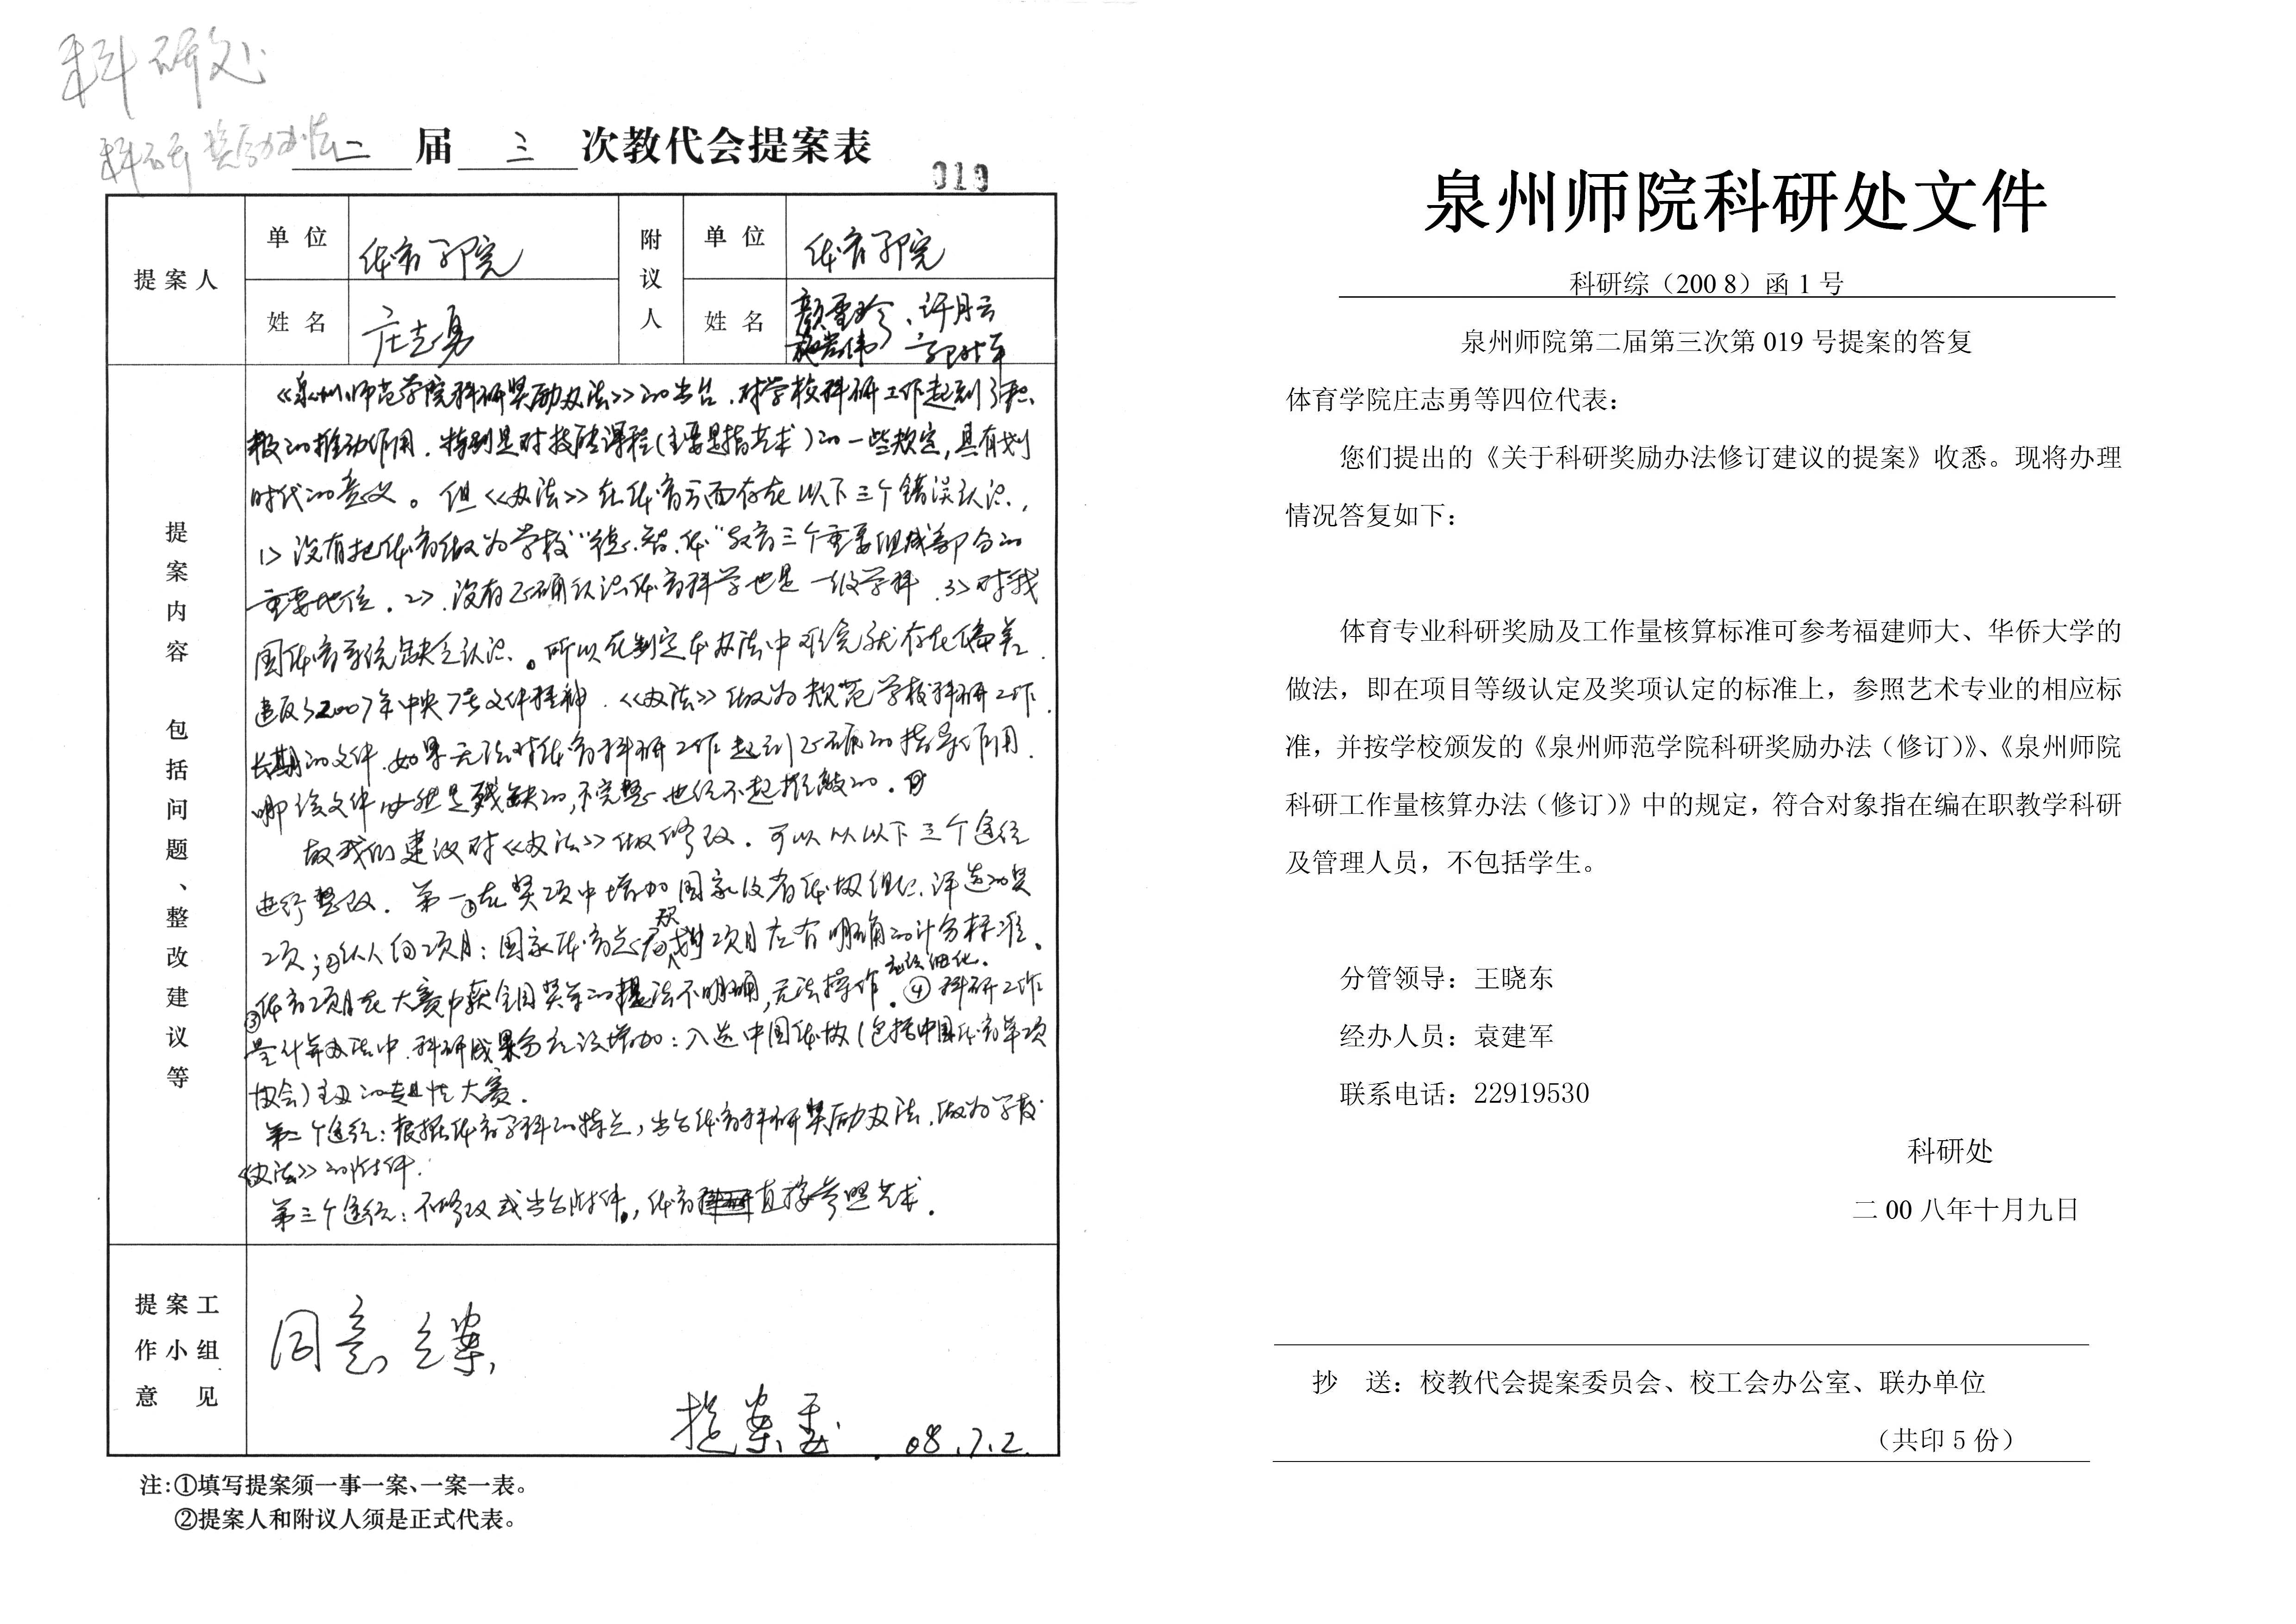 科研处
科研奖励办法
二 届 三 次教代会提案表
019
提案人
单位
体育学院
附议人
单位
体育学院
姓名
庄志勇
姓名
颜雪珍、许月云
《泉州师范学院科研奖励办法》的出台，对学校科研工作起到了积
极的推动作用，特别是对技能课程（主要是指艺术）的一些规定，具有划
时代的意义。但《办法》在体育方面存在以下三个错误认识，
1> 没有把体育做为学校“德、智、体”教育三个重要组成部分的
重要地位，2>，没有正确认识体育科学也是一级学科，3>对我
国体育系统缺乏认识。所以在制定本办法中难免就存在偏差，
违反了2007年中央7号文件精神，《办法》做为规范学校科研工作
长期的文件，如果无法对体育科研工作起到正确的指导作用，
哪该文件必然是残缺的，不完整也经不起推敲的。
故我们建议对《办法》做修改，可以从以下三个途径
进行整改，第一①在奖项中增加国家级省体协组织评选的奖
项；②纵向项目：国家体育总局规划项目应有明确的计分标准。
③体育项目在大赛中获全国奖等的提法不明确，无法操作，应该细化。④科研工作
量计算办法中，科研成果分应该增加：入选中国体协（包括中国体育单项
协会）主办的专业性大赛。
第二个途径：根据体育学科的特点，出台体育科研奖励办法，做为学校
《办法》的附件．
第三个途径：不修改或出台附件，体育直接参照艺术．
提案内容 包括问题、整改建议等
提案工
作小组
意见
同意立案，
提案委
08.7.2
注：①填写提案须一事一案、一案一表。
②提案人和附议人须是正式代表。
泉州师院科研处文件
科研综（200 8）函 1 号
泉州师院第二届第三次第 019 号提案的答复
体育学院庄志勇等四位代表：
您们提出的《关于科研奖励办法修订建议的提案》收悉。现将办理
情况答复如下：
体育专业科研奖励及工作量核算标准可参考福建师大、华侨大学的
做法，即在项目等级认定及奖项认定的标准上，参照艺术专业的相应标
准，并按学校颁发的《泉州师范学院科研奖励办法（修订）》、《泉州师院
科研工作量核算办法（修订）》中的规定，符合对象指在编在职教学科研
及管理人员，不包括学生。
分管领导：王晓东
经办人员：袁建军
联系电话：22919530
科研处
二 00 八年十月九日
抄 送：校教代会提案委员会、校工会办公室、联办单位
（共印 5 份）